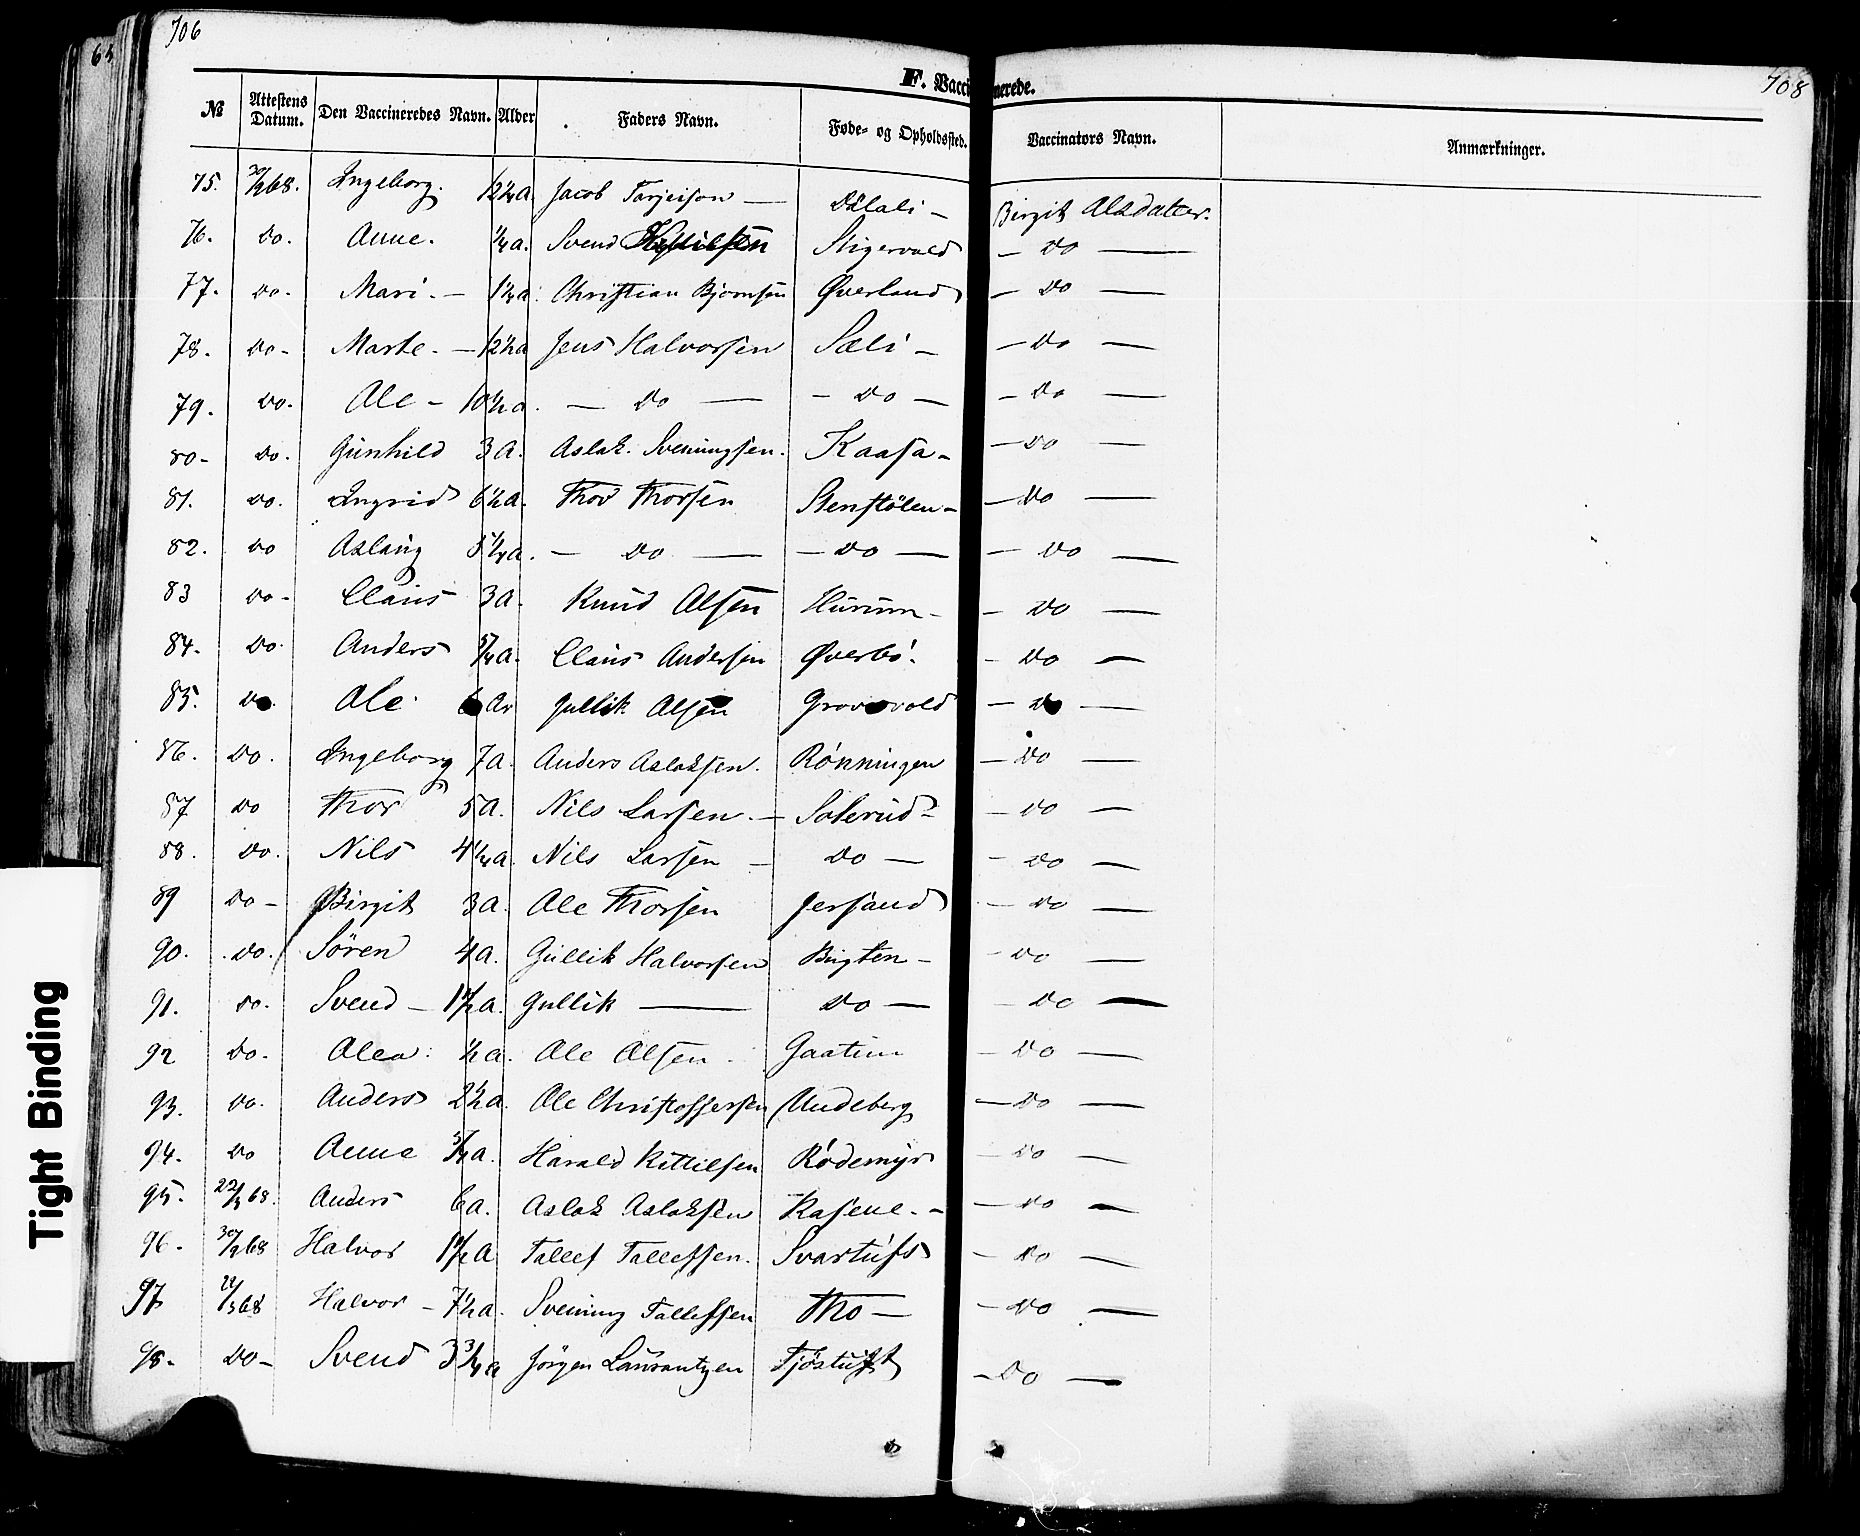 706
708
65
F. Vaccinerede.
№ Attestens Datum. Den Vaccineredes Navn. Alder Faders Navn. Føde- og Opholdssted. Vaccinators Navn. Anmærkninger.
75. 30/9 68. Ingeborg. 12 1/4 a Jacob Tarjeison — Dålali — Birgit Alsdatter.
76. Do. Anne. 1/4 a. Svend Kittilsen Stigervold — Do —
77. Do. Mari. — 1 1/4 a. Christian Bjørnsen Øverland — Do —
78. Do — Marte. — 12 1/2 a Jens Halvorsen Sæli — — Do —
79. Do. Ale — 10 1/2 a. — Do — — Do — — Do —
80 — Do. Gunhild 3 a. Aslak. Sveinungsen. Kaasa — — Do —
81. Do. Ingrid 6 1/2 a. Thov Thorsen Stenstölen — — Do —
82. Do Aslaug 5 1/4 a. — Do — — Do — — Do —
83 Do — Claus 3 a. Knud Alsen Hurum — — Do —
84. Do. Anders 5/4 a. Claus Andersen Øverbö. — Do —
85. Do. Ale 6 Ar Gullik Alsen Grovavold — Do —
86. Do. Ingeborg 7 a. Anders Aslaksen. Rönningen — Do —
87 Do Thor 5 a. Nils Larsen. — Solerud — — Do —
88. Do. Nils 4 1/4 a. Nils Larsen — Do — — Do —
89 Do — Birgit 3 a. Ale Thorsen Jersand — Do —
90. Do. Sören 4 a. Gullik Halvorsen Bugten — — Do —
91. Do. Svend — 1 1/2 a. Gullik — Do — — Do —
92 Do. Alea 1/2 a. Ale Alsen Gaatun — Do —
93. Do. Anders 2 1/2 a. Ale Christoffersen Undeberg — Do —
94. Do Anne 3/4 a. Harald Kittilsen Rödemyr — Do —
95. 22/3 68. Anders 6 a. Aslak Aslaksen Rasene. — — Do —
96. 30/9 68 Halvor 1 1/2 a Tallef Tallefsen. Svartufs — Do —
97 22/3 68 Halvor — 7 1/2 a. Sveinung Tallefsen Tho — — Do —
98. Do — Svend 3 3/4 a Jörgen Laurantzen Tjöstuft — Do —
Tight Binding